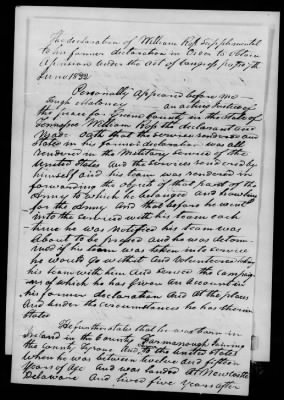 The declaration of William Ross Supplimental
to his former declaration in Order to obtain
A pension under the Act of Congress passed 7th
June 1832
Personally Appeared before me
Hugh Maloney an acting Justice of
the peace for Green County in the State of
Tennessee William Ross the declarant and
Made Oath that the services rendered and
stated in his former declaration was all
rendered in the Military service of the
United States And the services rendered by
himself and his team was rendered in
forwarding the object of that part of the
Army to which he belonged and hawling
for the Army And that before he went
into the service with his team each
time he was notified his team was
About to be pressed and he was determined
if his team was taken into service
he would go with it and Volunteered
his team with him And served the campaigns
of which he has given an account in
his former declaration And at the places
And under the circumstances he has therein
States
He further states that he was born in
Ireland in the County Farmanough Joining
the County Tyrone And to the United States
when he was between twelve and fifteen
Years of Age and was landed at Newcastle
Delaware And lived five years after